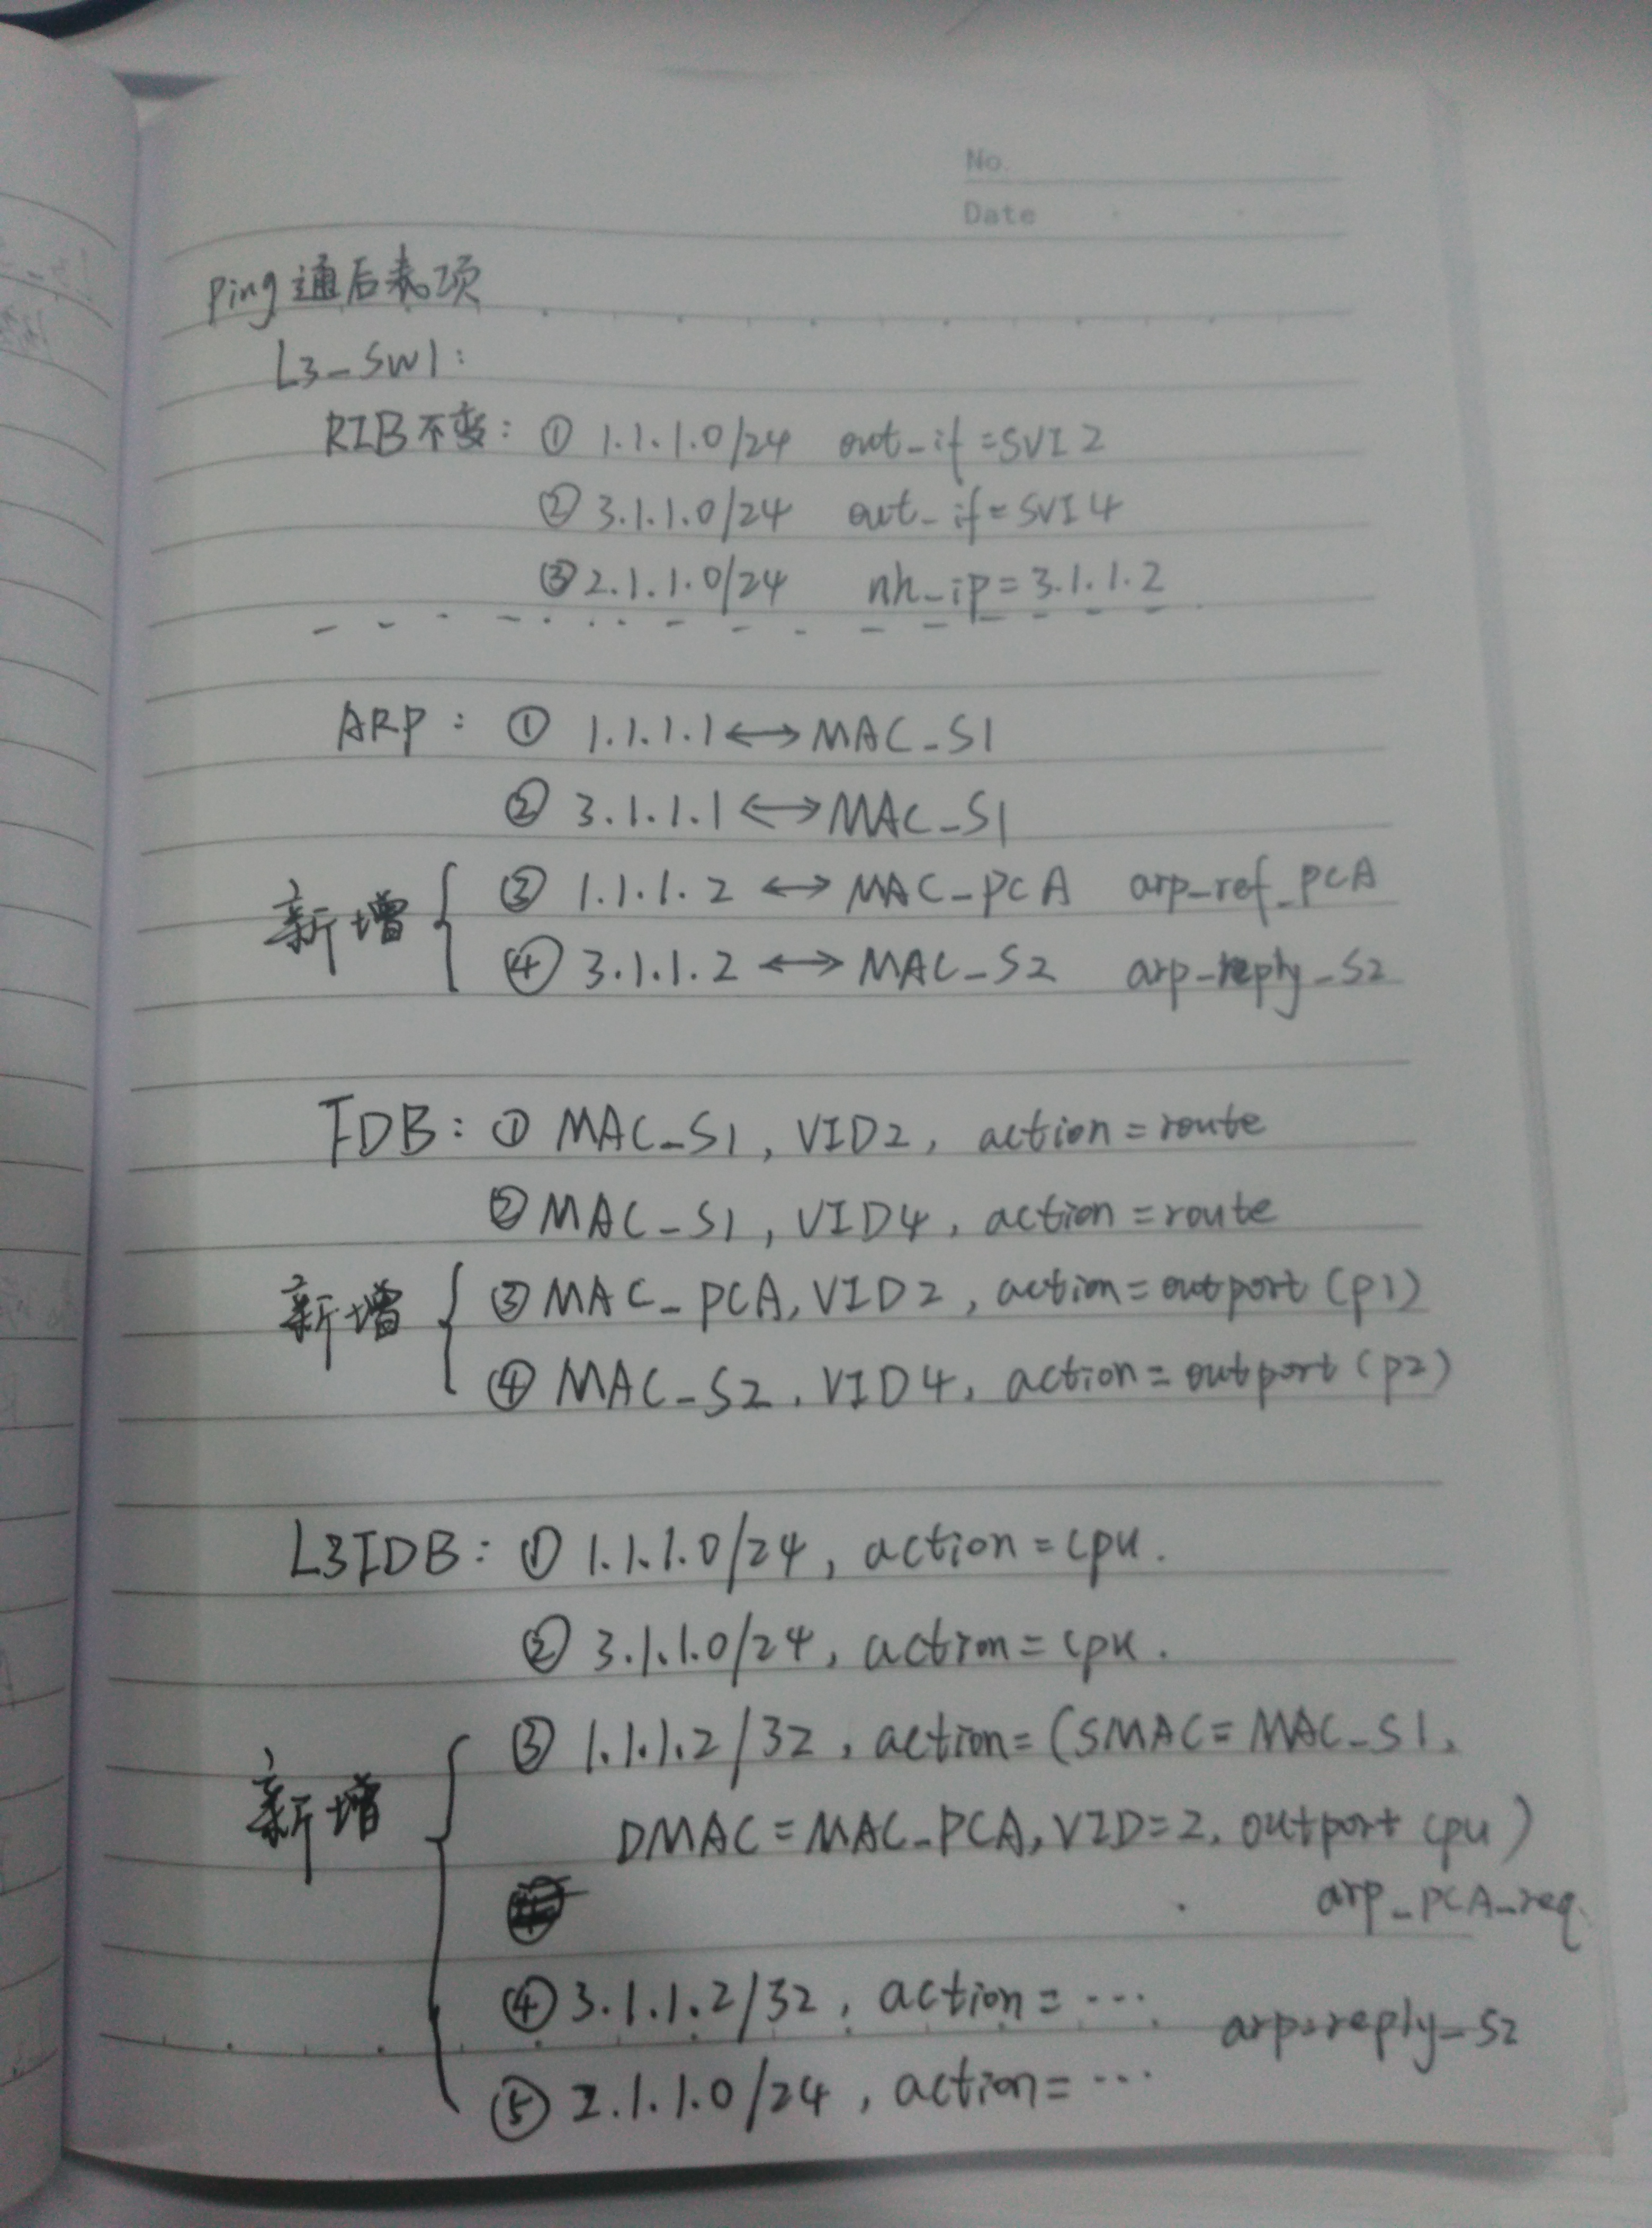 No.
Date
Ping通后表项
L3_SW1:
RIB不变: ① 1.1.1.0/24 out_if=SVI2
② 3.1.1.0/24 out_if=SVI4
③ 2.1.1.0/24 nh_ip=3.1.1.2
ARP: ① 1.1.1.1↔MAC_S1
② 3.1.1.1↔MAC_S1
新增 ③ 1.1.1.2↔MAC_PCA arp_ref_PCA
④ 3.1.1.2↔MAC_S2 arp_reply_S2
FDB: ① MAC_S1, VID2, action=route
② MAC_S1, VID4, action=route
新增 ③ MAC_PCA, VID2, action=outport(p1)
④ MAC_S2, VID4, action=outport(p2)
L3FDB: ① 1.1.1.0/24, action=cpu.
② 3.1.1.0/24, action=cpu.
新增 ③ 1.1.1.2/32, action=(SMAC=MAC_S1,
DMAC=MAC_PCA, VID=2, outport cpu)
arp_PCA_req.
④ 3.1.1.2/32, action=... arp_reply_S2
⑤ 2.1.1.0/24, action=...